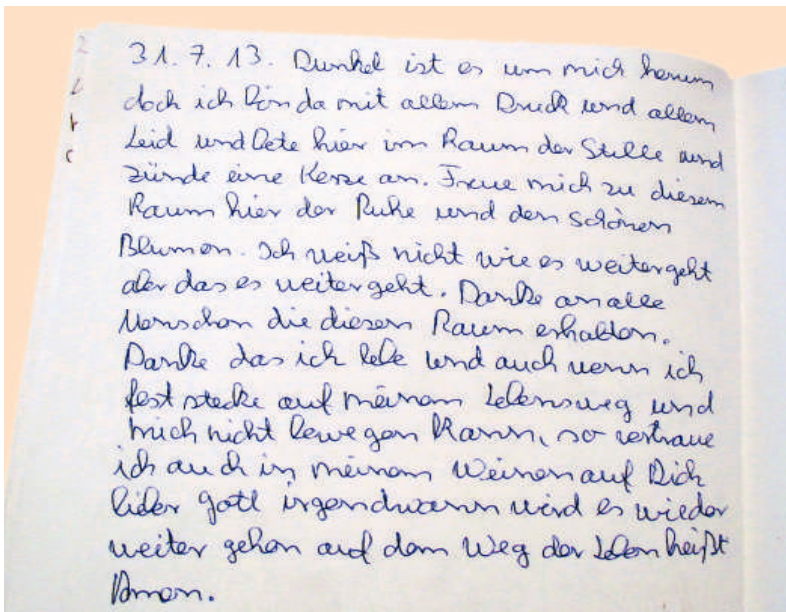 31.7.13. Dunkel ist es um mich herum
doch ich bin da mit allem Druck und allem
Leid und bete hier im Raum der Stille und
zünde eine Kerze an. Freue mich zu diesem
Raum hier der Ruhe und den schönen
Blumen. Ich weiß nicht wie es weitergeht
aber das es weitergeht. Danke an alle
Menschen die diesen Raum erhalten.
Danke das ich lebe und auch wenn ich
fest stecke auf meinem Lebensweg und
mich nicht bewegen kann, so vertraue
ich auch in meinem Weinen auf Dich
lieber Gott irgendwann wird es wieder
weiter gehen auf dem Weg der Leben heißt
Amen.